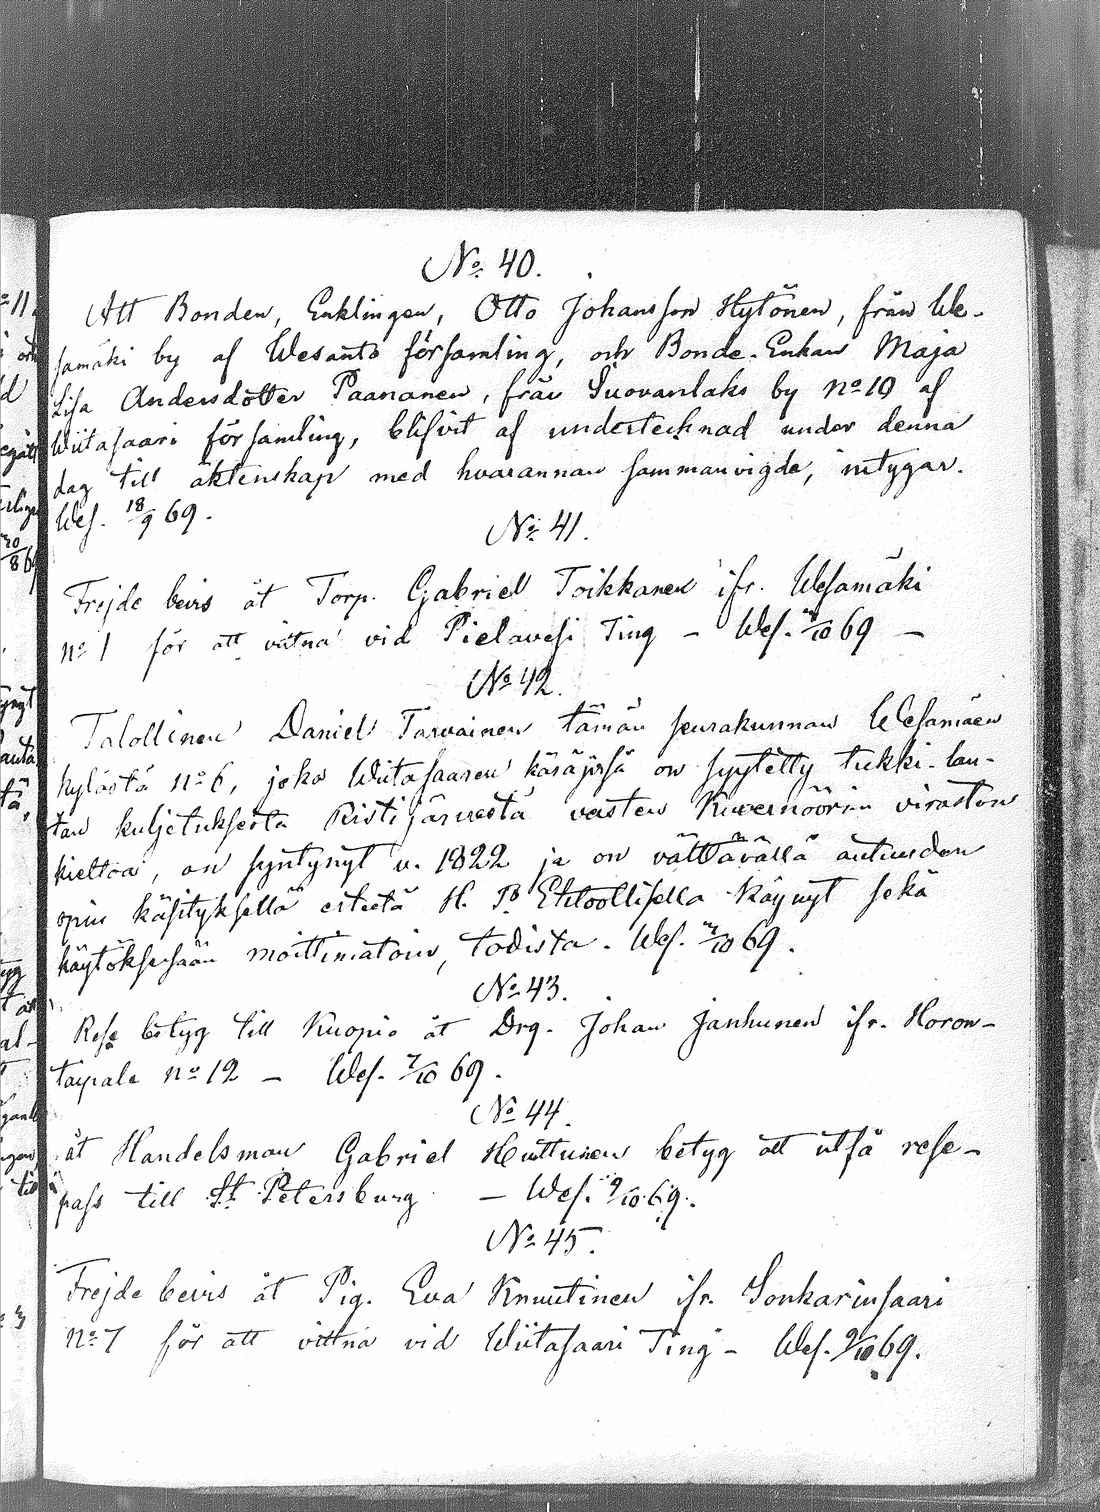 No 40.
Att Bonden, Enklingen, Otto Johansson Hytönen, från We-
samäki by af Wesanto församling, och Bonde-Enkan Maja
Lisa Andersdotter Paananen, från Suovanlaks by No 10 af
Wiitasaari församling, blifvit af undertecknad under denna
dag till äktenskap med hvarannan sammanvigde, intygar.
Wes. 18/9 69.
No 41.
Frejde bevis åt Torp. Gabriel Toikkanen ifr. Wesamäki
No 1 för att vittna vid Pielavesi Ting – Wes. /10 69 –
No 42.
Talollinen Daniel Tarvainen tämän seurakunnan Wesamäen
kylästä No 6, joka Wiitasaaren käräjissä on syytetty tukki-lau-
tan kuljetuksesta Ristijärvestä vasten Kuvernöörin viraston
kieltoa, on syntynyt v. 1822 ja on välttävällä autuuden
opin käsityksellä esteetä H. P. Ehtoollisella käynyt sekä
käytöksessään moittimatoin, todistaa. Wes. /10 69.
No 43.
Rese betyg till Kuopio åt Drg. Johan Janhunen ifr. Horon-
taipale No 12 – Wes. 7/10 69.
No 44.
åt Handelsman Gabriel Huttunen betyg att utfå rese-
pass till St. Petersburg – Wes. 9/10 69.
No 45.
Frejde bevis åt Pig. Eva Knuutinen ifr. Sonkarinsaari
No 7 för att vittna vid Wiitasaari Ting – Wes. 9/10 69.